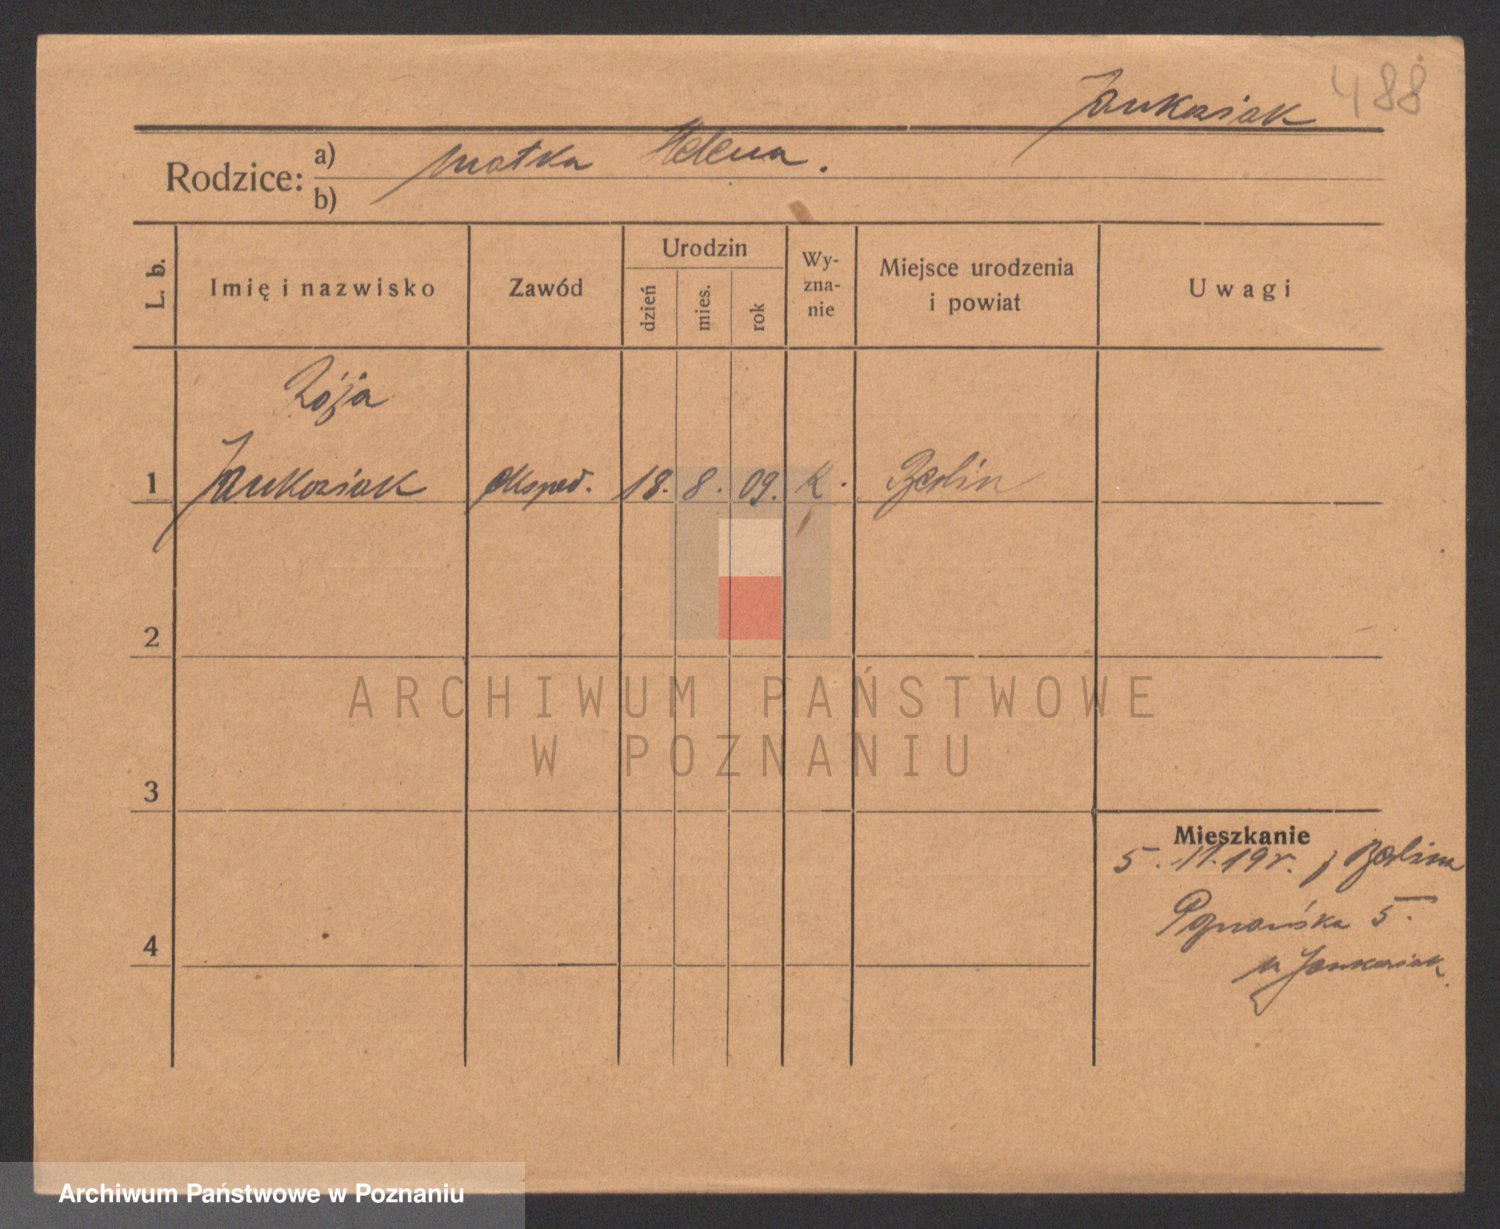 488
Jankowiak
Rodzice:
a) matka Helena.
b)
L. b.
Imię i nazwisko
Zawód
Urodzin
dzień
mies.
rok
Wy-
zna-
nie
Miejsce urodzenia
i powiat
Uwagi
1
Jankowiak
eksped.
18.
8.
09.
k.
Berlin
2
3
4
Mieszkanie
5.11.19r. z Berlina
Poznańska 5.
u Jankowiak
ARCHIWUM PAŃSTWOWE
W POZNANIU
Archiwum Państwowe w Poznaniu